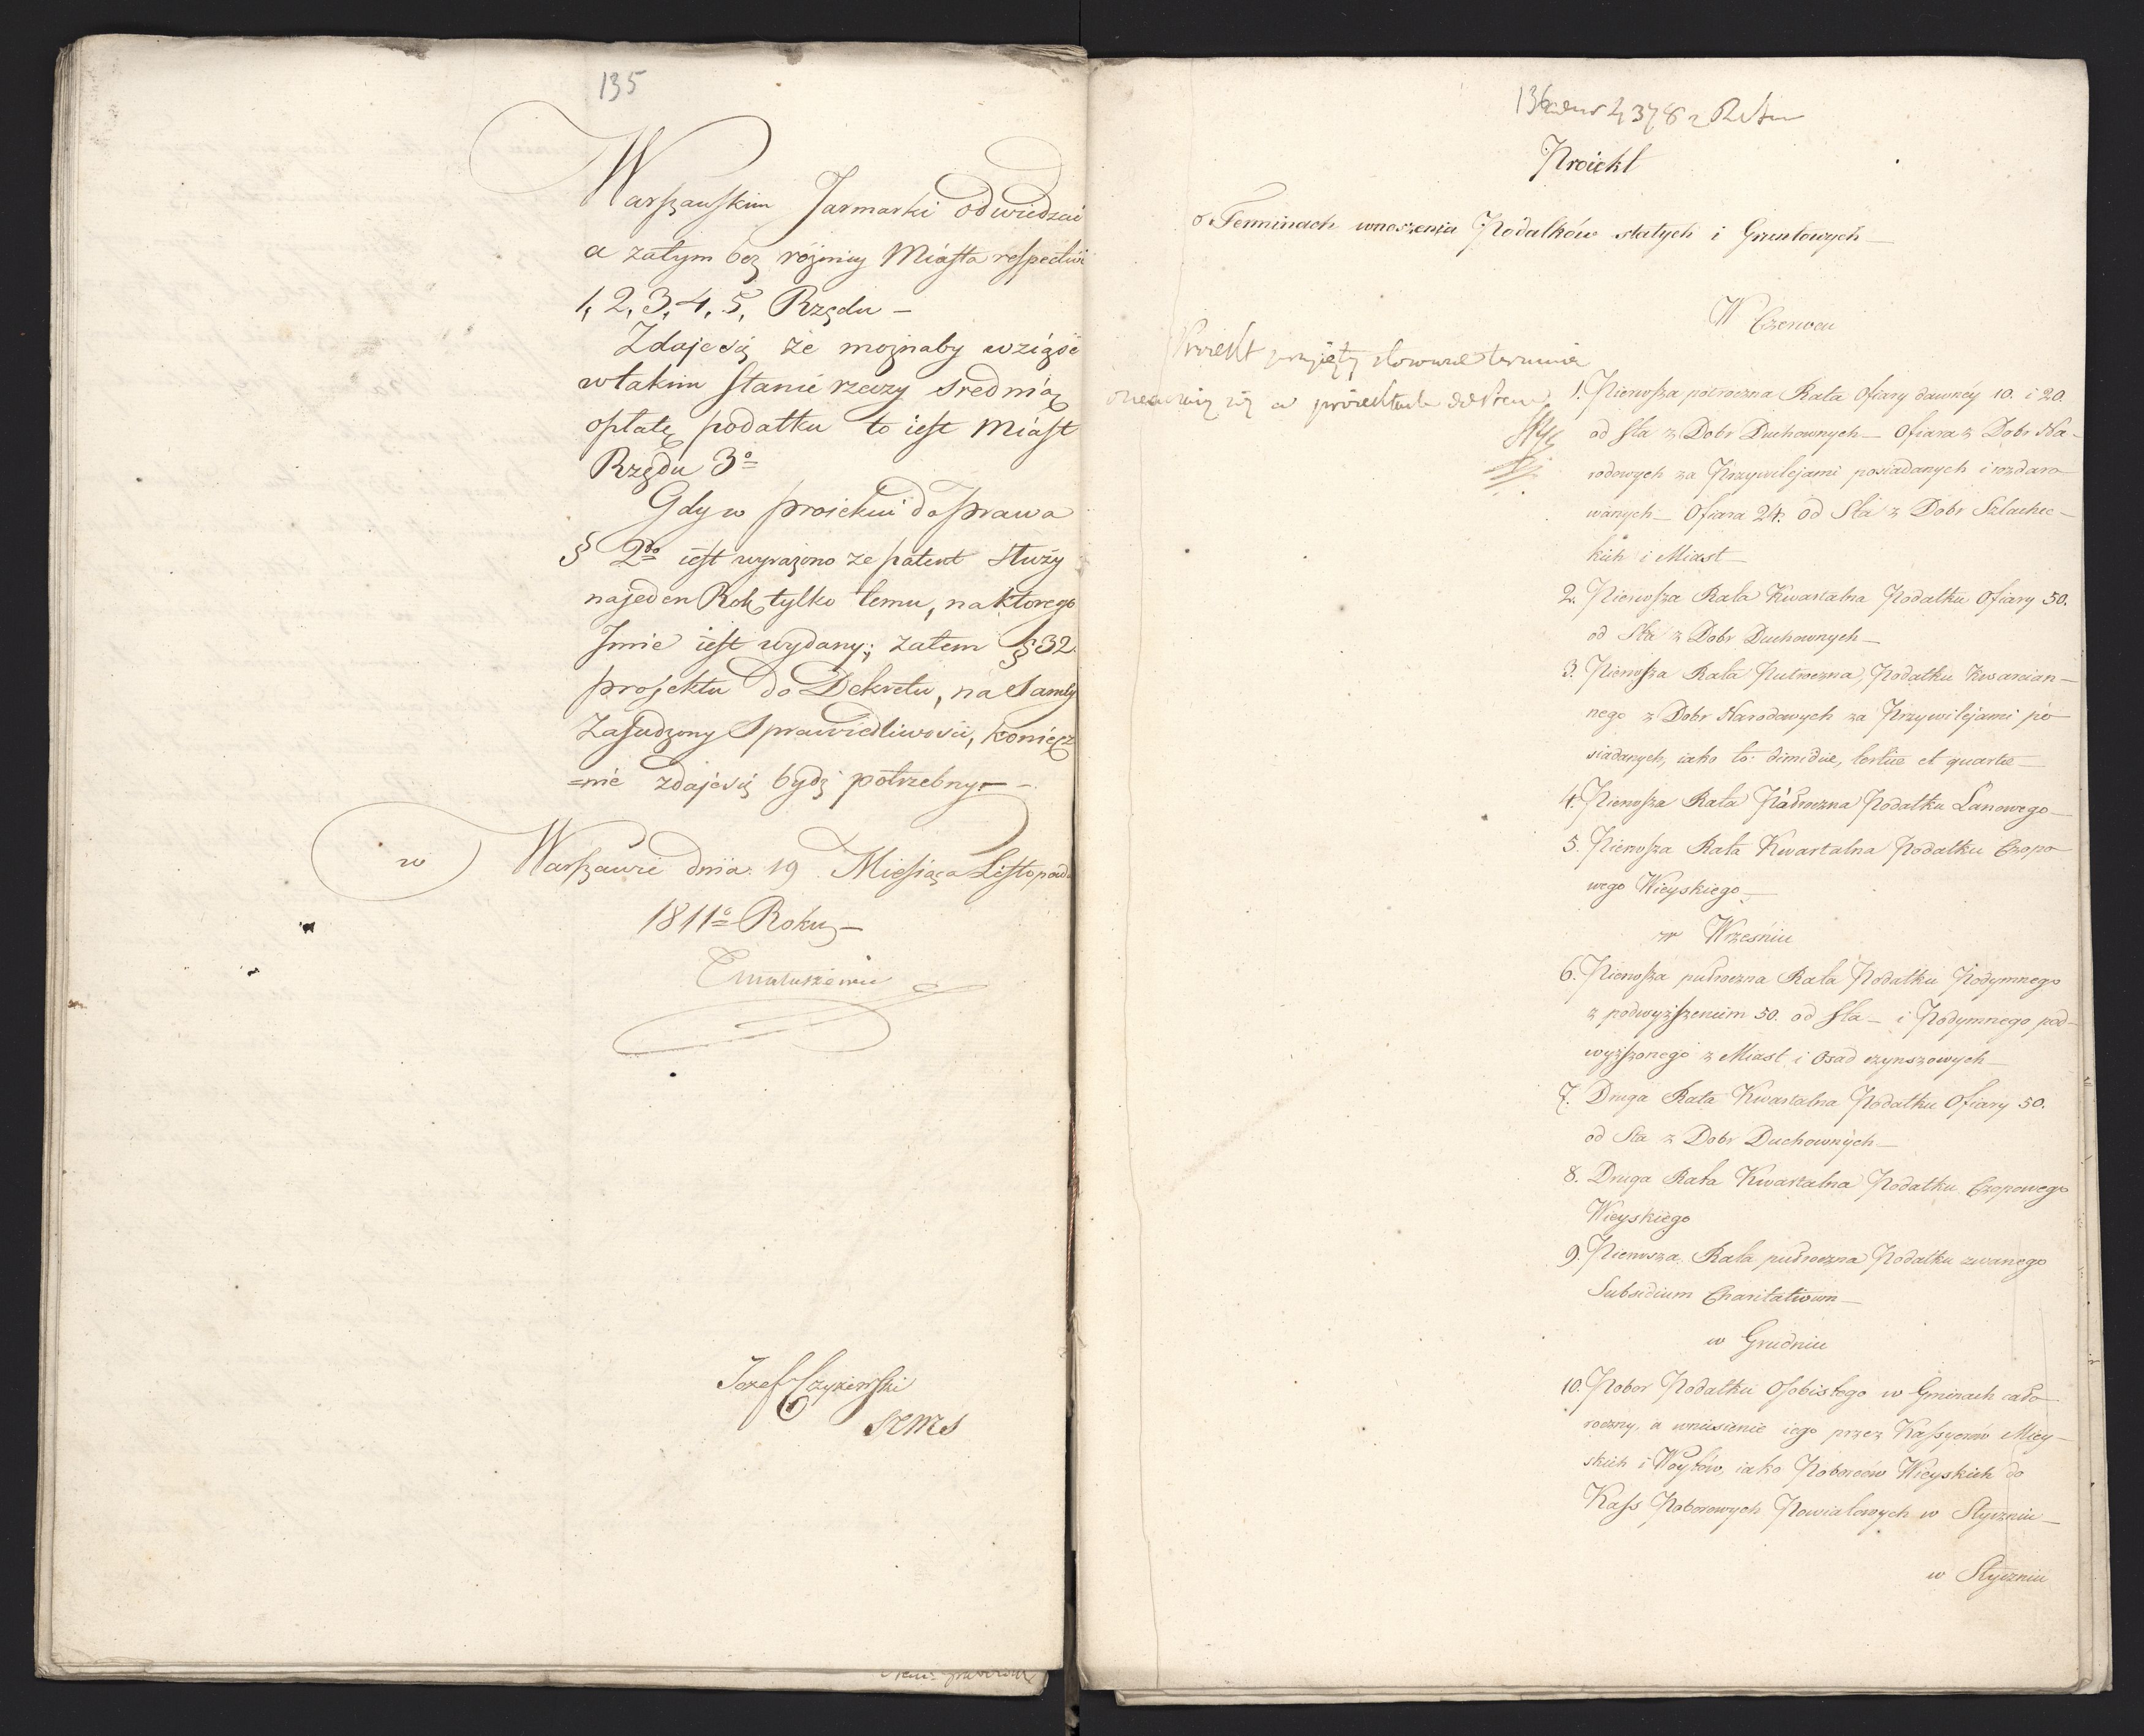 135
Warszawskim Jarmarki odwiedzać
a zatym bez różnicy Miasta respective
1, 2, 3, 4, 5, Rzędu —
Zdaje się że możnaby wziąść
w takim stanie rzeczy srednią
opłatę podatku to iest Miast
Rzędu 3º
Gdy w proiekcie do prawa
§ 2do iest wyrażono ze patent służy
na jeden Rok tylko temu, na ktorego
Jmie iest wydany; zatem § 32.
projektu do Dekretu, na samey
zasudzony Sprawiedliwości, koniecz
=nie zdaje się bydź potrzebny —
w Warszawie dnia 19 Miesiąca Listopada
1811º Roku —
Jozef
136
Proiekt
o Terminach wnoszenia Podatków stałych i Gruntowych —
W Czerwcu
Proiekt przyięty
1. Pierwsza półroczna Rata Ofiary dawney 10. i 20.
od sta z Dobr Duchownych — Ofiara z Dobr Na-
rodowych za Przywilejami posiadanych i rozdaro
wanych — Ofiara 24. od Sta z Dobr Szlachec-
kich i Miast —
2. Pierwsza Rata Kwartalna Podatku Ofiary 50.
od Sta z Dobr Duchownych —
3. Pierwsza Rata Pułroczna, Podatku Kwarcian-
nego z Dobr Narodowych za Przywilejami po
siadanych, iako to: dimidiae, tertiae et quartae —
4. Pierwsza Rata Półroczna Podatku Łanowego —
5. Pierwsza Rata Kwartalna Podatku Czopo
wego Wieyskiego —
w Wrzesniu
6. Pierwsza pułroczna Rata Podatku Podymnego
z podwyższeniem 50. od sta — i Podymnego pod-
wyższonego z Miast i Osad czynszowych —
7. Druga Rata Kwartalna Podatku Ofiary 50.
od Sta z Dobr Duchownych —
8. Druga Rata Kwartalna Podatku Czopowego
Wieyskiego
9. Pierwsza Rata pułroczna Podatku zwanego
Subsidium Charitativum —
w Grudniu
10. Pobor Podatku Osobistego w Gminach cało
roczny, a wniesienie iego przez Kassyerów Miey-
skich i Woytów, iako Poborców Wieyskich do
Kass Poborowych Powiatowych w Styczniu —
w Styczniu